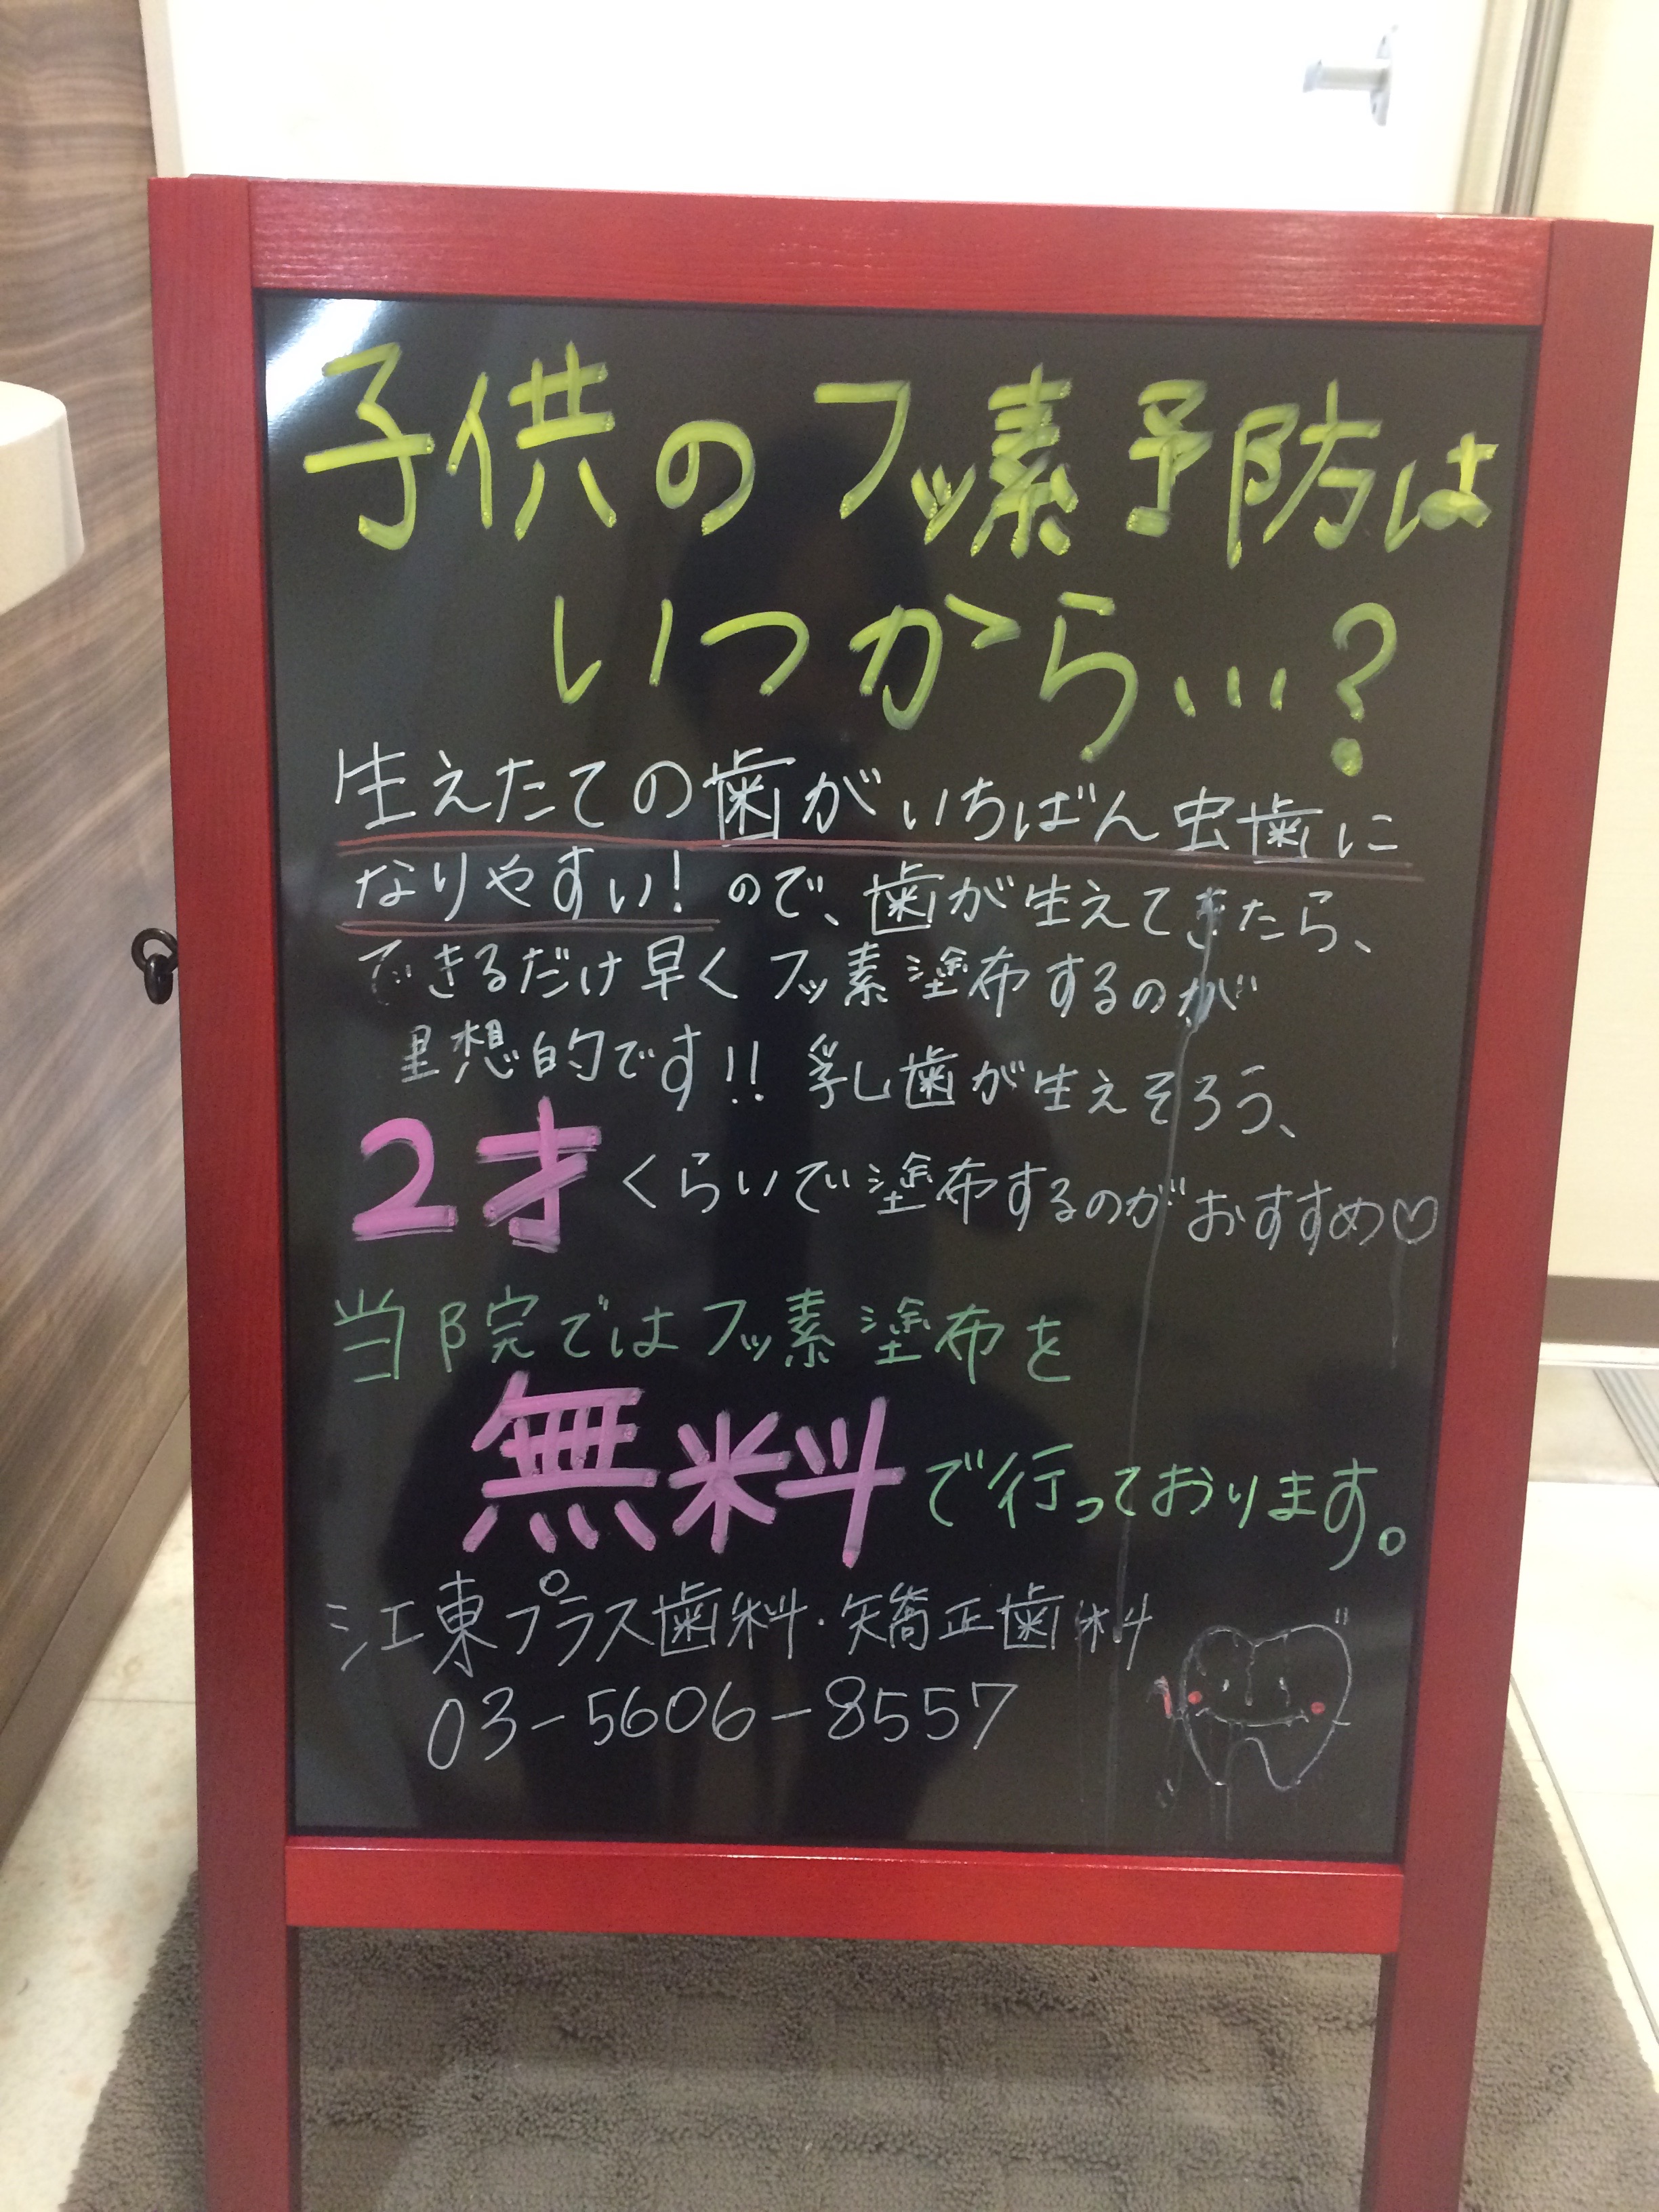 子供のフッ素予防は
いつから…?
生えたての歯がいちばん虫歯に
なりやすい!ので、歯が生えてきたら、
できるだけ早くフッ素塗布するのが
理想的です!!乳歯が生えそろう、
2才くらいで塗布するのがおすすめ♡
当院ではフッ素塗布を
無料で行っております。
江東プラス歯科・矯正歯科
03-5606-8557